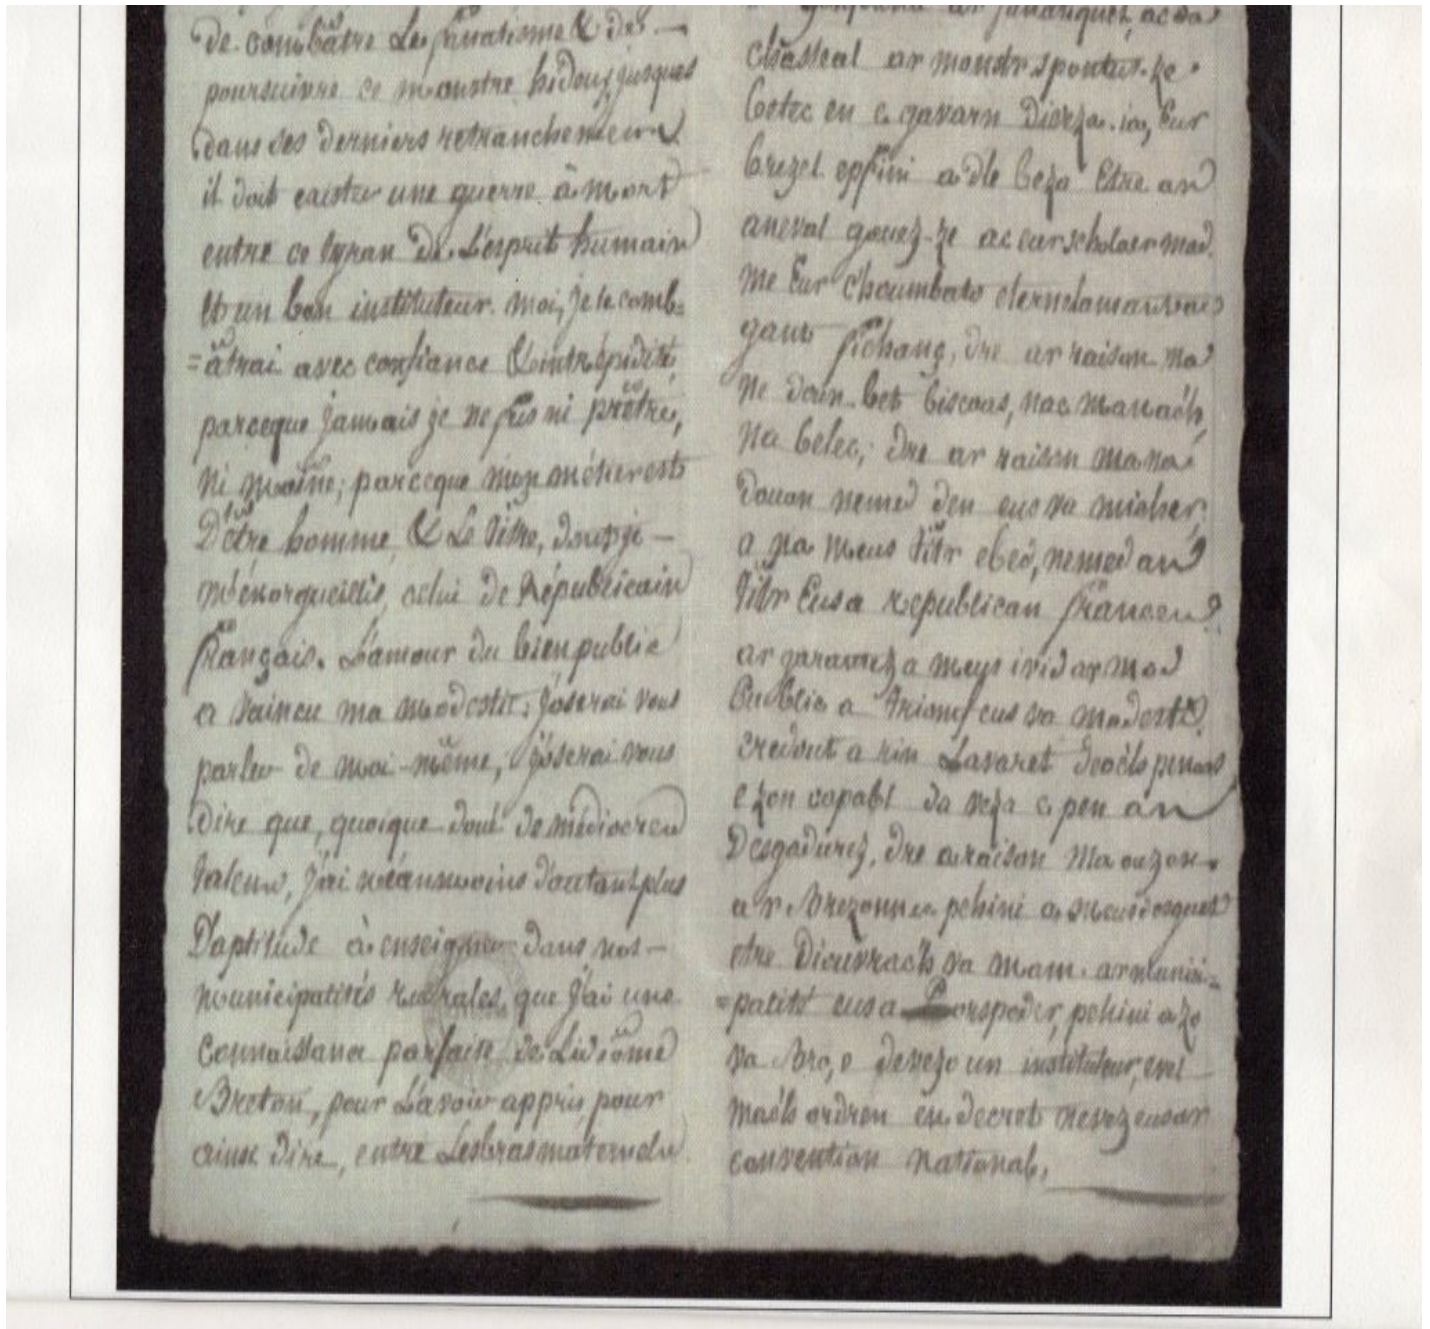 de combâtre Le fanatisme & de —
poursuivre ce monstre hideux jusques
dans ses derniers retranchemens
il doit exister une guerre à mort
entre ce tyran de L'esprit humain
Et un bon instituteur. moi, je le comb-
=âtrai avec confiance & intrépidité,
parceque jamais je ne fus ni prêtre,
ni moine; parceque mon métier est
D'être homme, & Le titre, dont je —
m'énorgueillis, celui de Républicain
français. L'amour du bien public
a vaincu ma modestie; j'oserai vous
parler de moi-même, j'oserai vous
dire que, quoique doué de médiocres
talens, j'ai néanmoins d'autant plus
D'aptitude à enseigner dans nos —
municipalités rurales, que j'ai une
connaissance parfaite de L'idiôme
Breton, pour L'avoir appris, pour
ainsi dire, entre Les bras maternels
ar ac da
chasseal ar monstr spontus-ze
betec en e gavarn diveza. ia, Eur
brezel a dle beza Etre an
aneval gouez-ze ac eur scholaer mad.
me Eur c'houmbato
gant fichanç, dre ar raison ma
ne doun bet biscoas, nac manac'h,
na belec; dre ar raison ma na
douan nemed den eus va micher,
a na meus titr ebed, nemed an
titr Eus a republican
ar garantez a meus ar mad
Public a triomf eus va modesti.
credout a rin Lavaret deoc'h penaos
e zon capabl da veza e pen an
Desgadurez, dre a raison ma ouzon
ar Brezonnec pehini a meus desquet
etre Diouvrac'h va mam. ar munici-
=palité eus a Porspoder, pehini a zo
va Bro, e devezo un instituteur, evel
mac'h ordren en decret nevez eus ar
convention national.